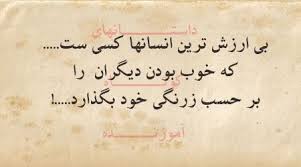 داستانهای
بی ارزش ترین انسانها کسی ست.....
که خوب بودن دیگران را
کوتاه
بر حسب زرنگی خود بگذارد.....!
آموزنده